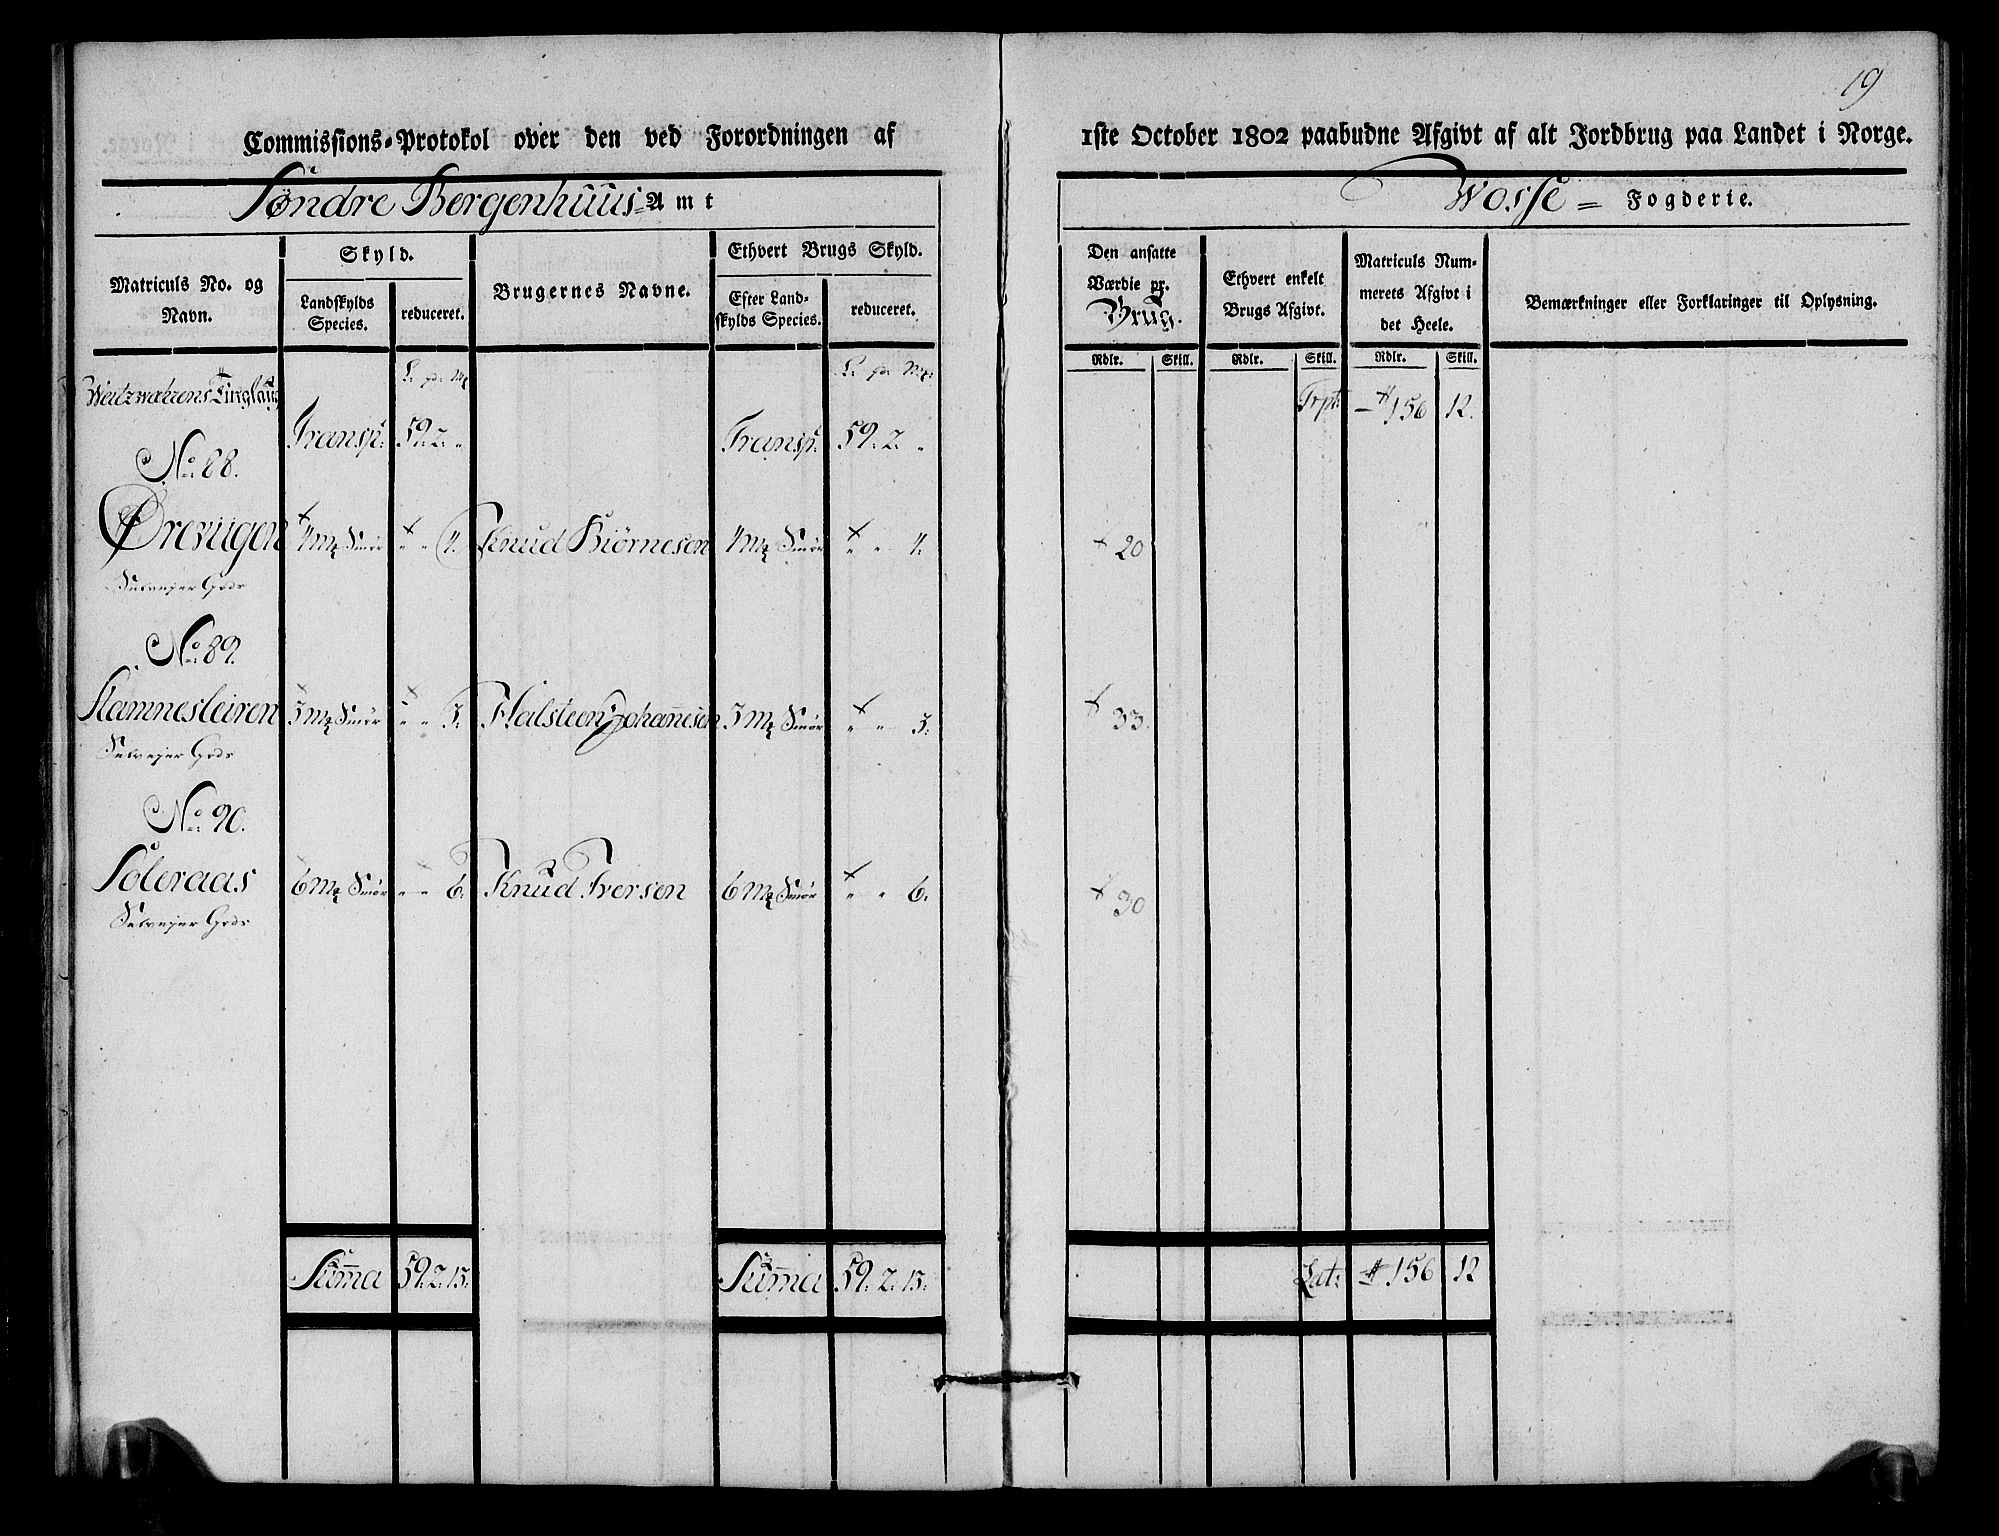 19
Commissions-Protokol over den ved Forordningen af 1ste October 1802 paabudne Afgivt af alt Jordbrug paa Landet i Norge.
Söndre Bergenhuus-Amt Wosse = Fogderie.
Matriculs No. og Navn.
Skyld.
Landskylds Species.
reduceret.
Brugernes Navne.
Ethvert Brugs Skyld.
Efter Landskylds Species.
reduceret.
Den ansatte Værdie pr. Brug.
Ethvert enkelt Brugs Afgivt.
Matriculs Nummerets Afgivt i det Heele.
Bemærkninger eller Forklaringer til Oplysning.
Rdlr. Skill. Rdlr. Skill. Rdlr. Skill.
L. pd. Mk L. pd. Mk:
Transp: 59. 2. „ Transp: 59. 2. „ Trpt: 156 12.
No. 88.
Ørevugen 4 Mk Smör „ „ 4. Knud Biørnesen 4 Mk Smör „ „ 4. 20
Selvejer Gods
No. 89.
Stamnesleiren 5 Mk Smör „ „ 5. Halsteen Johannesen 5 Mk Smör „ „ 5. 33.
Selvejer Gods
No. 90.
Söleraas 6 Mk Smör „ „ 6. Knud Iversen 6 Mk Smör „ „ 6. 30
Selvejer Gods
Summa 59. 2. 15. Summa 59. 2. 15. Lat: 156 12